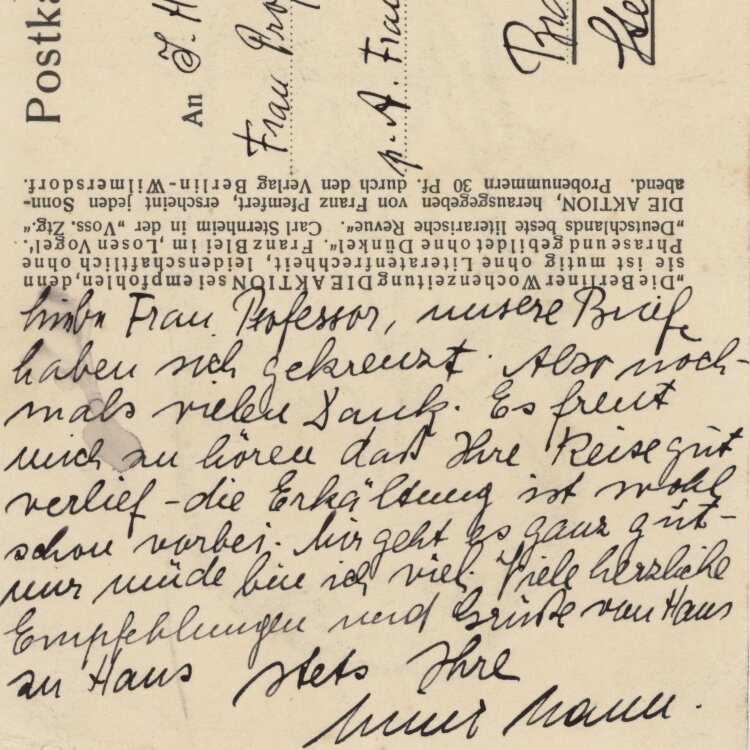 Postka
An
Frau Pro
p. A. Frau
„Die Berliner Wochenzeitung DIE AKTION sei empfohlen, denn
sie ist mutig ohne Literatenfrechheit, leidenschaftlich ohne
Phrase und gebildet ohne Dünkel“. Franz Blei im „Losen Vogel“.
„Deutschlands beste literarische Revue“. Carl Sternheim in der „Voss. Ztg.“
DIE AKTION, herausgegeben von Franz Pfemfert, erscheint jeden Sonn-
abend. Probenummern 30 Pf. durch den Verlag Berlin-Wilmersdorf.
Liebe Frau Professor, unsere Brief
haben sich gekreuzt. Also noch-
mals vielen Dank. Es freut
mich zu hören daß Ihre Reise gut
verlief – die Erkältung ist wohl
schon vorbei. Mir geht es ganz gut –
nur müde bin ich viel. Viele herzliche
Empfehlungen und Grüße von Haus
zu Haus stets Ihre
Mann.